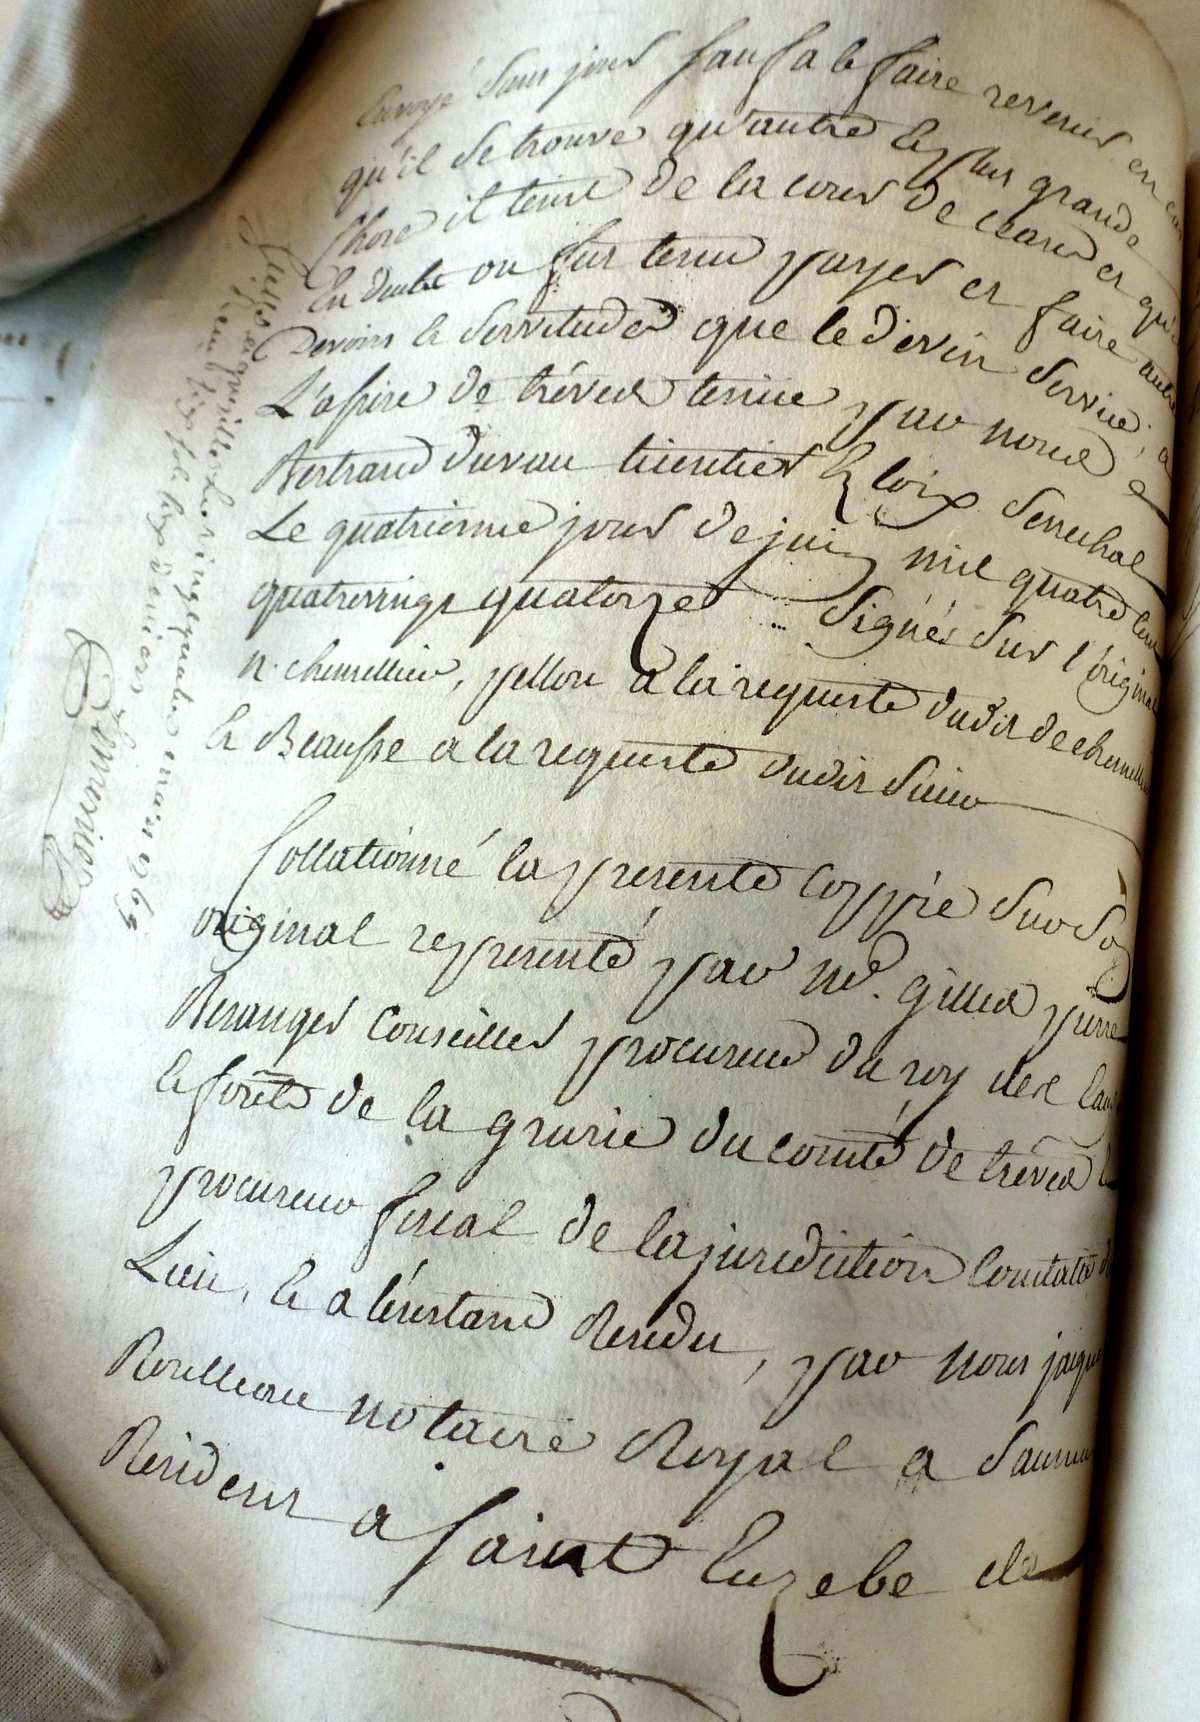 Envoyé sans jours sauf a le faire revenir en cas
qu'il se trouve qu'autre le plus grande
Chose il tenist de la cour de ceans et qu'il
En deubt ou fut tenu payer et faire autre
Devoirs et servitudes que le devin service, a
L'assise de trèves tenue par nous
Bertrand duvau licentier Es loix Seneschal
Le quatriesme jour de juin mil quatre cent
quatrevingt quatorze Signés sur l'original
n. chemellier, pellou a la requeste dudit de chemellier
et Beausse a la requeste dudit Sieur
Collationné la presente coppie sur son
original représenté par Me. gilles pierre
Beranger Conseiller procureur du roy des eaux
et forêts de la grurie du comté de trèves et
procureur fiscal de la juridiction Comtale du
Lieu, et a l'instant Rendu, par nous jacques
Rouilleau notaire Royal a Saumur
Résident a Saint Euzebe de
vingt quatre mars 1769
Fournier